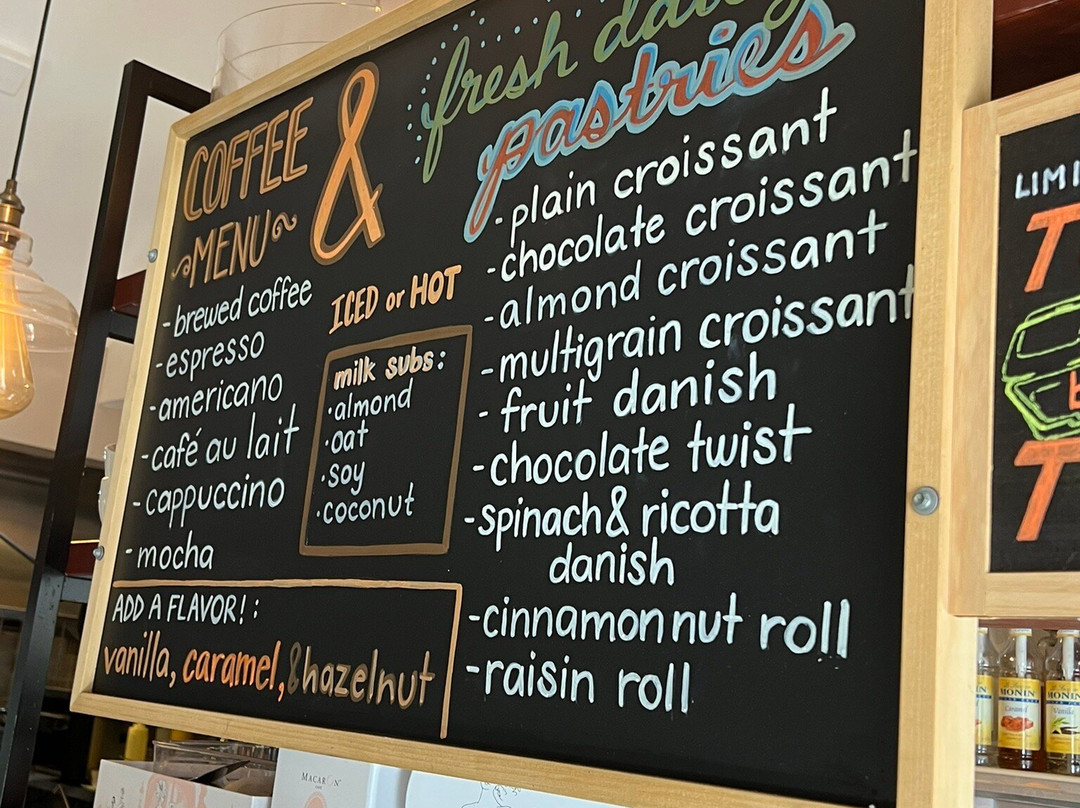 COFFEE
~MENU~
&
-brewed coffee
-espresso
-americano
-café au lait
-cappuccino
-mocha
ICED or HOT
milk subs:
·almond
·oat
·soy
·coconut
ADD A FLAVOR! :
vanilla, caramel, & hazelnut
fresh daily
pastries
-plain croissant
-chocolate croissant
-almond croissant
-multigrain croissant
- fruit danish
-chocolate twist
-spinach & ricotta
danish
-cinnamon nut roll
-raisin roll
LIMI
T
T
MONIN
MONIN
Caramel
MONIN
Vanilla
MACARON